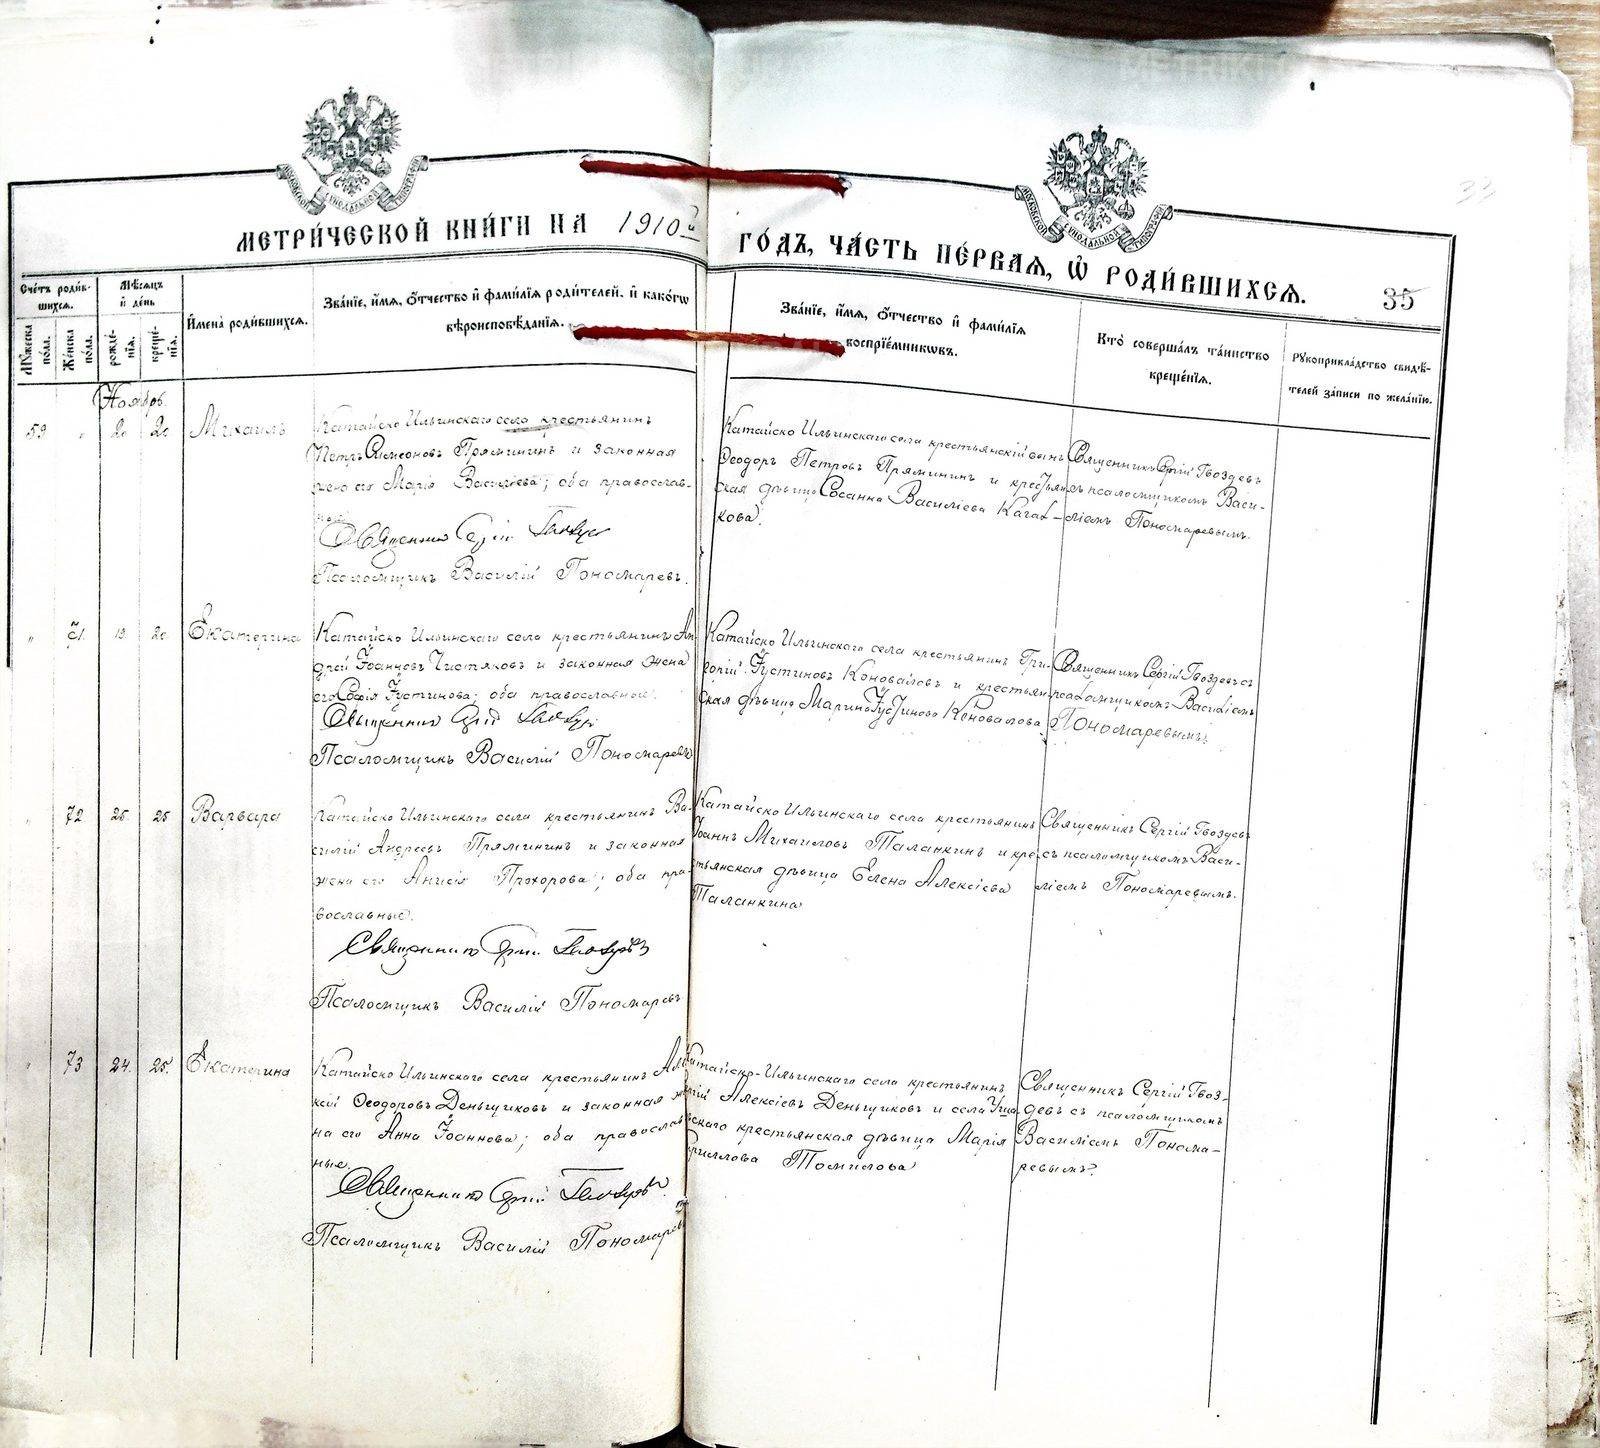 МЕТРИ́ЧЕСКОЙ КНИ́ГИ НА 1910й
ГО́ДЪ, ЧА́СТЬ ПЕ́РВАЯ, Ѡ҆ РОДИ́ВШИХСЯ.
35
33
Сче́тъ роди́в-
шихся.
Му́жеска
по́ла.
Же́нска
по́ла.
Мѣ́сяцъ
и҆ де́нь
рожде́-
нїя.
креще́-
нїя.
И҆мена̀ роди́вшихся.
Зва́нїе, и҆́мя, ѻ҆́тчество и҆ фами́лїя роди́телей, и҆ како́гѡ
вѣроисповѣ́данїя.
Зва́нїе, и҆́мя, ѻ҆́тчество и҆ фами́лїя
воспрїе́мникѡвъ.
Кто̀ соверша́лъ та́инство
креще́нїя.
Рукоприкла́дство свидѣ́-
телей за́писи по жела́нїю.
Ноябрь.
59 " 20 20 Михаилъ
Катайско Ильинскаго села крестьянинъ
Петръ Симеоновъ Пряминин и законная
жена его Марія Васильева; оба православ-
ные.
Священникъ Сергій Гвоздевъ
Псаломщикъ Василій Пономаревъ.
Катайско Ильинскаго села крестьянскій сынъ
Ѳеодоръ Петровъ Пряминин и крестьян-
ская дѣвица Сосанна Василіева Кагал-
кова.
Священникъ Сергій Гвоздевъ
съ псаломщикомъ Васи-
ліемъ Пономаревымъ.
" 71. 19. 20 Екатерина
Катайско Ильинскаго села крестьянинъ Ан-
дрей Іоанновъ Чистяковъ и законная жена
его Софія Іустинова; оба православные.
Священникъ Сергій Гвоздевъ
Псаломщикъ Василій Пономаревъ
Катайско Ильинскаго села крестьянинъ Гри-
горій Іустиновъ Коноваловъ и крестьян-
ская дѣвица Марина Іустинова Коновалова.
Священникъ Сергій Гвоздевъ съ
псаломщикомъ Василіемъ
Пономаревымъ.
" 72 25. 25 Варвара
Катайско Ильинскаго села крестьянинъ Ва-
силій Андреевъ Пряминин и законная
жена его Анисія Прохорова; оба пра-
вославные.
Священникъ Сергій Гвоздевъ
Псаломщикъ Василій Пономаревъ
Катайско Ильинскаго села крестьянинъ
Іоаннъ Михаиловъ Таланкинъ и кре-
стьянская дѣвица Елена Алексіева
Таланкина
Священникъ Сергій Гвоздевъ
съ псаломщикомъ Васи-
ліемъ Пономаревымъ.
" 73 24. 25. Екатерина
Катайско Ильинскаго села крестьянинъ Але-
ксій Ѳеодоровъ Деньщиковъ и законная же-
на его Анна Іоаннова; оба православ-
ные.
Священникъ Сергій Гвоздевъ.
Псаломщикъ Василій Пономаревъ
Катайско-Ильинскаго села крестьянинъ
Алексіевъ Деньщиковъ и села
крестьянская дѣвица Марія
Кириллова Томилова
Священникъ Сергій Гвоз-
девъ съ псаломщикомъ
Василіемъ Понома-
ревымъ.